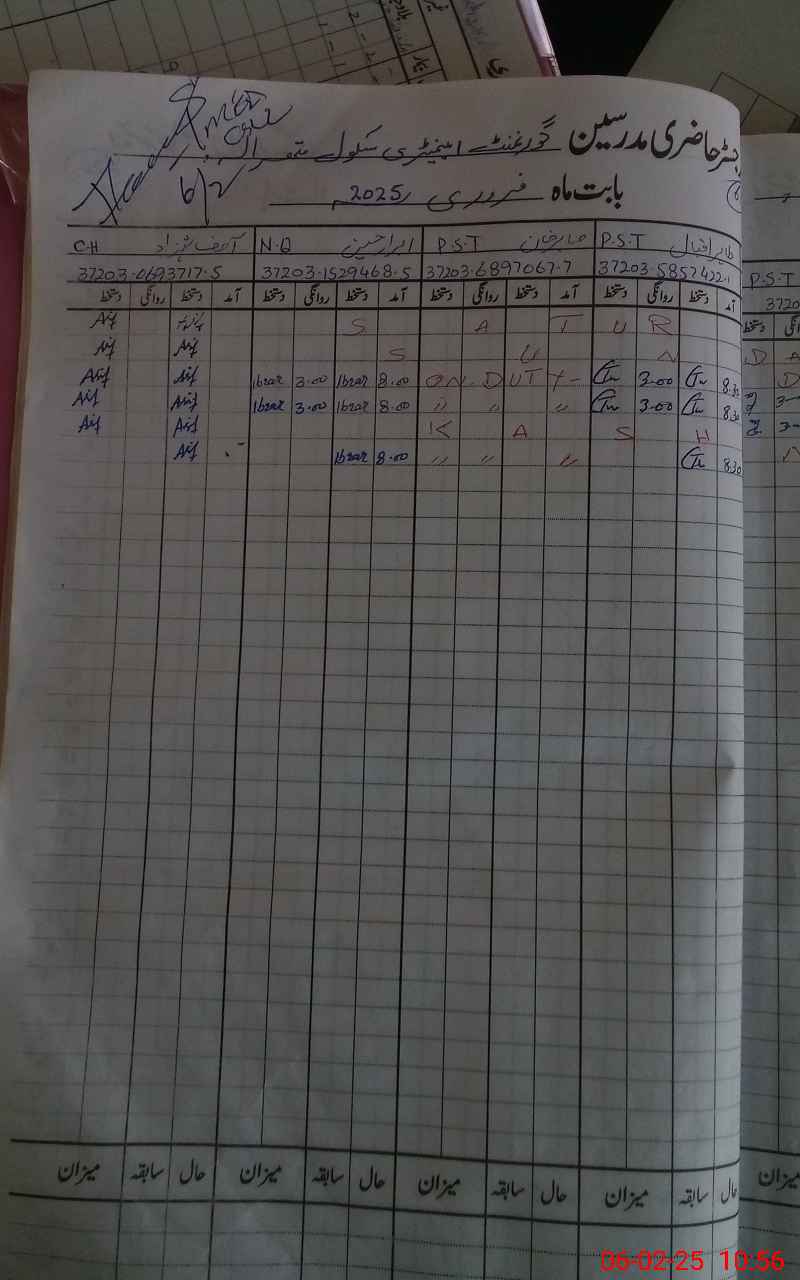 رجسٹر حاضری مدرسین گورنمنٹ ایلیمنٹری سکول
بابت ماہ فروری 2025ء
6/2
طاہر اقبال P.S.T صابر خان P.S.T ابرار حسین N.Q آصف شہزاد C.H
37203-0693717-5 37203-1529468-5 37203-6897067-7 37203-5857422-1
P.S.T
3720
آمد دستخط روانگی دستخط آمد دستخط روانگی دستخط آمد دستخط روانگی دستخط آمد دستخط روانگی دستخط
Asif S A T U R
Asif Asif S U N D A
Asif Asif Ibrar 3.00 Ibrar 8.00 ON DUTY - 3.00 8.30 D
Asif Asif Ibrar 3.00 Ibrar 8.00 〃 〃 〃 3.00 8.30
Asif Asif K A S H
Asif Ibrar 8.00 〃 〃 〃 8.30
حال سابقہ میزان حال سابقہ میزان حال سابقہ میزان حال سابقہ میزان
میزان
06-02-25 10:56